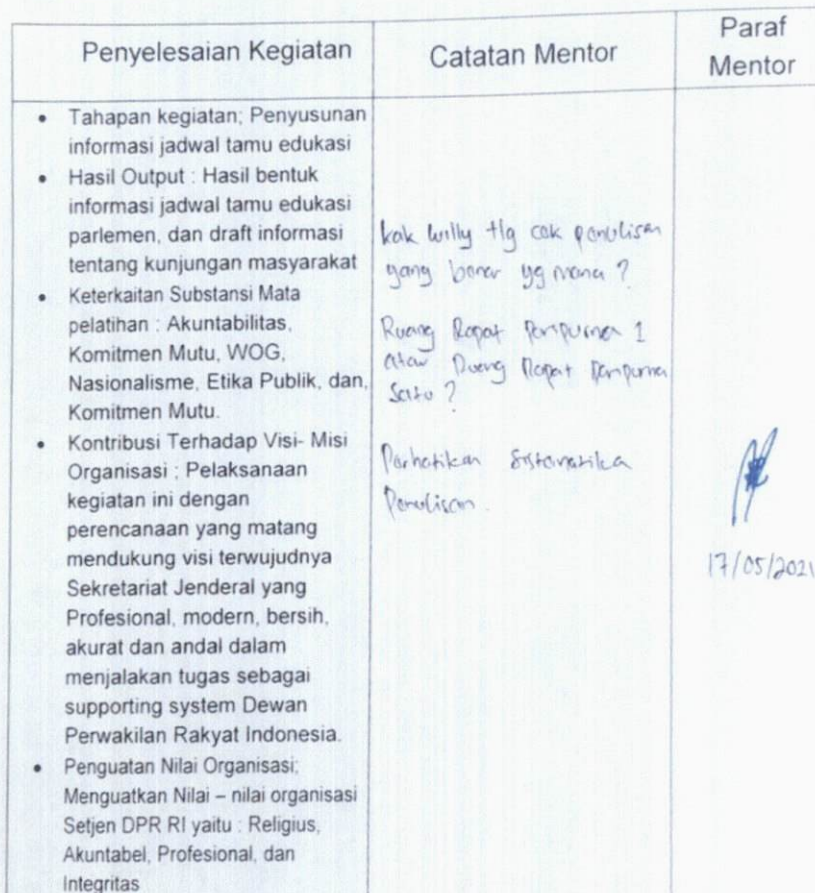 Penyelesaian Kegiatan
Catatan Mentor
Paraf
Mentor
• Tahapan kegiatan; Penyusunan
informasi jadwal tamu edukasi
• Hasil Output : Hasil bentuk
informasi jadwal tamu edukasi
parlemen, dan draft informasi
tentang kunjungan masyarakat
• Keterkaitan Substansi Mata
pelatihan : Akuntabilitas,
Komitmen Mutu, WOG,
Nasionalisme, Etika Publik, dan,
Komitmen Mutu.
• Kontribusi Terhadap Visi- Misi
Organisasi ; Pelaksanaan
kegiatan ini dengan
perencanaan yang matang
mendukung visi terwujudnya
Sekretariat Jenderal yang
Profesional, modern, bersih,
akurat dan andal dalam
menjalakan tugas sebagai
supporting system Dewan
Perwakilan Rakyat Indonesia.
• Penguatan Nilai Organisasi;
Menguatkan Nilai – nilai organisasi
Setjen DPR RI yaitu : Religius,
Akuntabel, Profesional, dan
Integritas
kak willy tlg cek penulisan
yang benar yg mana ?
Ruang Rapat Paripurna 1
atau Ruang Rapat Paripurna
Satu ?
Perhatikan Sistematika
Penulisan.
17/05/2021